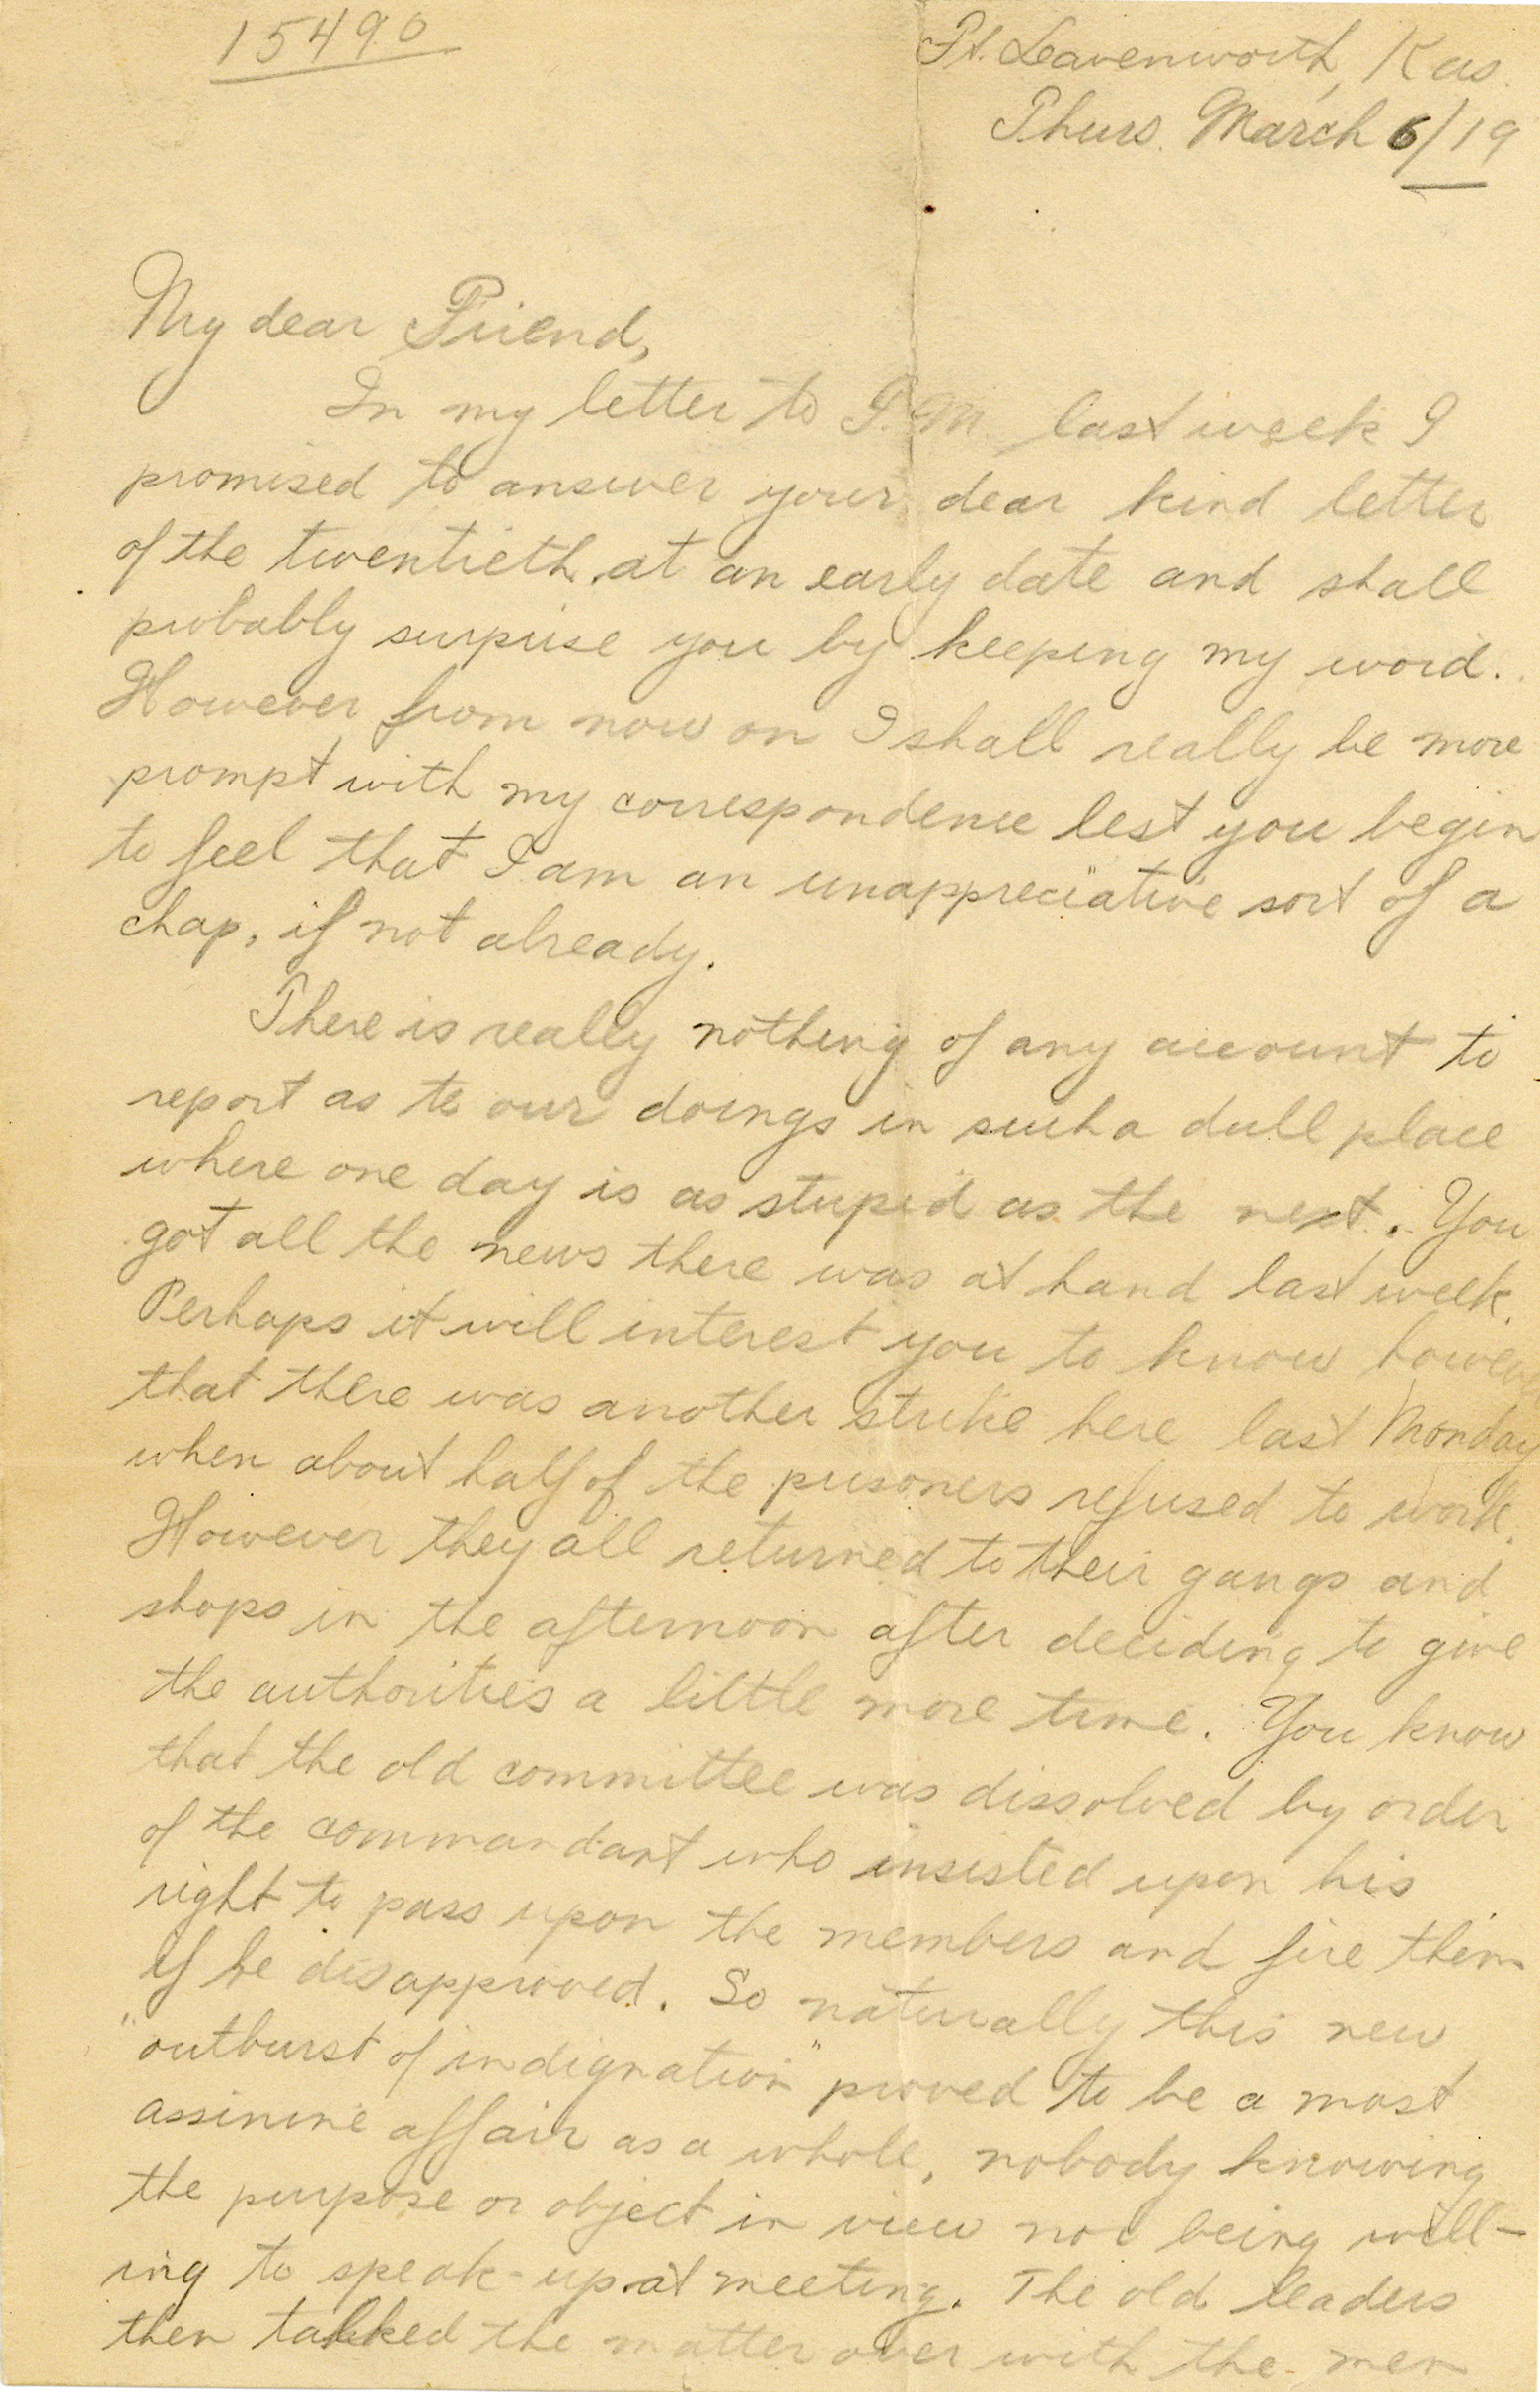 15490
Ft. Leavenworth, Kas.
Thurs. March 6/19
My dear Friend,
In my letter to T.M. last week I
promised to answer your dear kind letter
of the twentieth at an early date and shall
probably surprise you by keeping my word.
However from now on I shall really be more
prompt with my correspondence lest you begin
to feel that I am an unappreciative sort of a
chap, if not already.
There is really nothing of any account to
report as to our doings in such a dull place
where one day is as stupid as the next. You
got all the news there was at hand last week.
Perhaps it will interest you to know however
that there was another strike here last Monday
when about half of the prisoners refused to work.
However they all returned to their gangs and
shops in the afternoon after deciding to give
the authorities a little more time. You know
that the old committee was dissolved by order
of the commandant who insisted upon his
right to pass upon the members and fire them
if he disapproved. So naturally this new
"outburst of indignation" proved to be a most
assinine affair as a whole, nobody knowing
the purpose or object in view nor being will-
ing to speak-up at meeting. The old leaders
then talked the matter over with the men